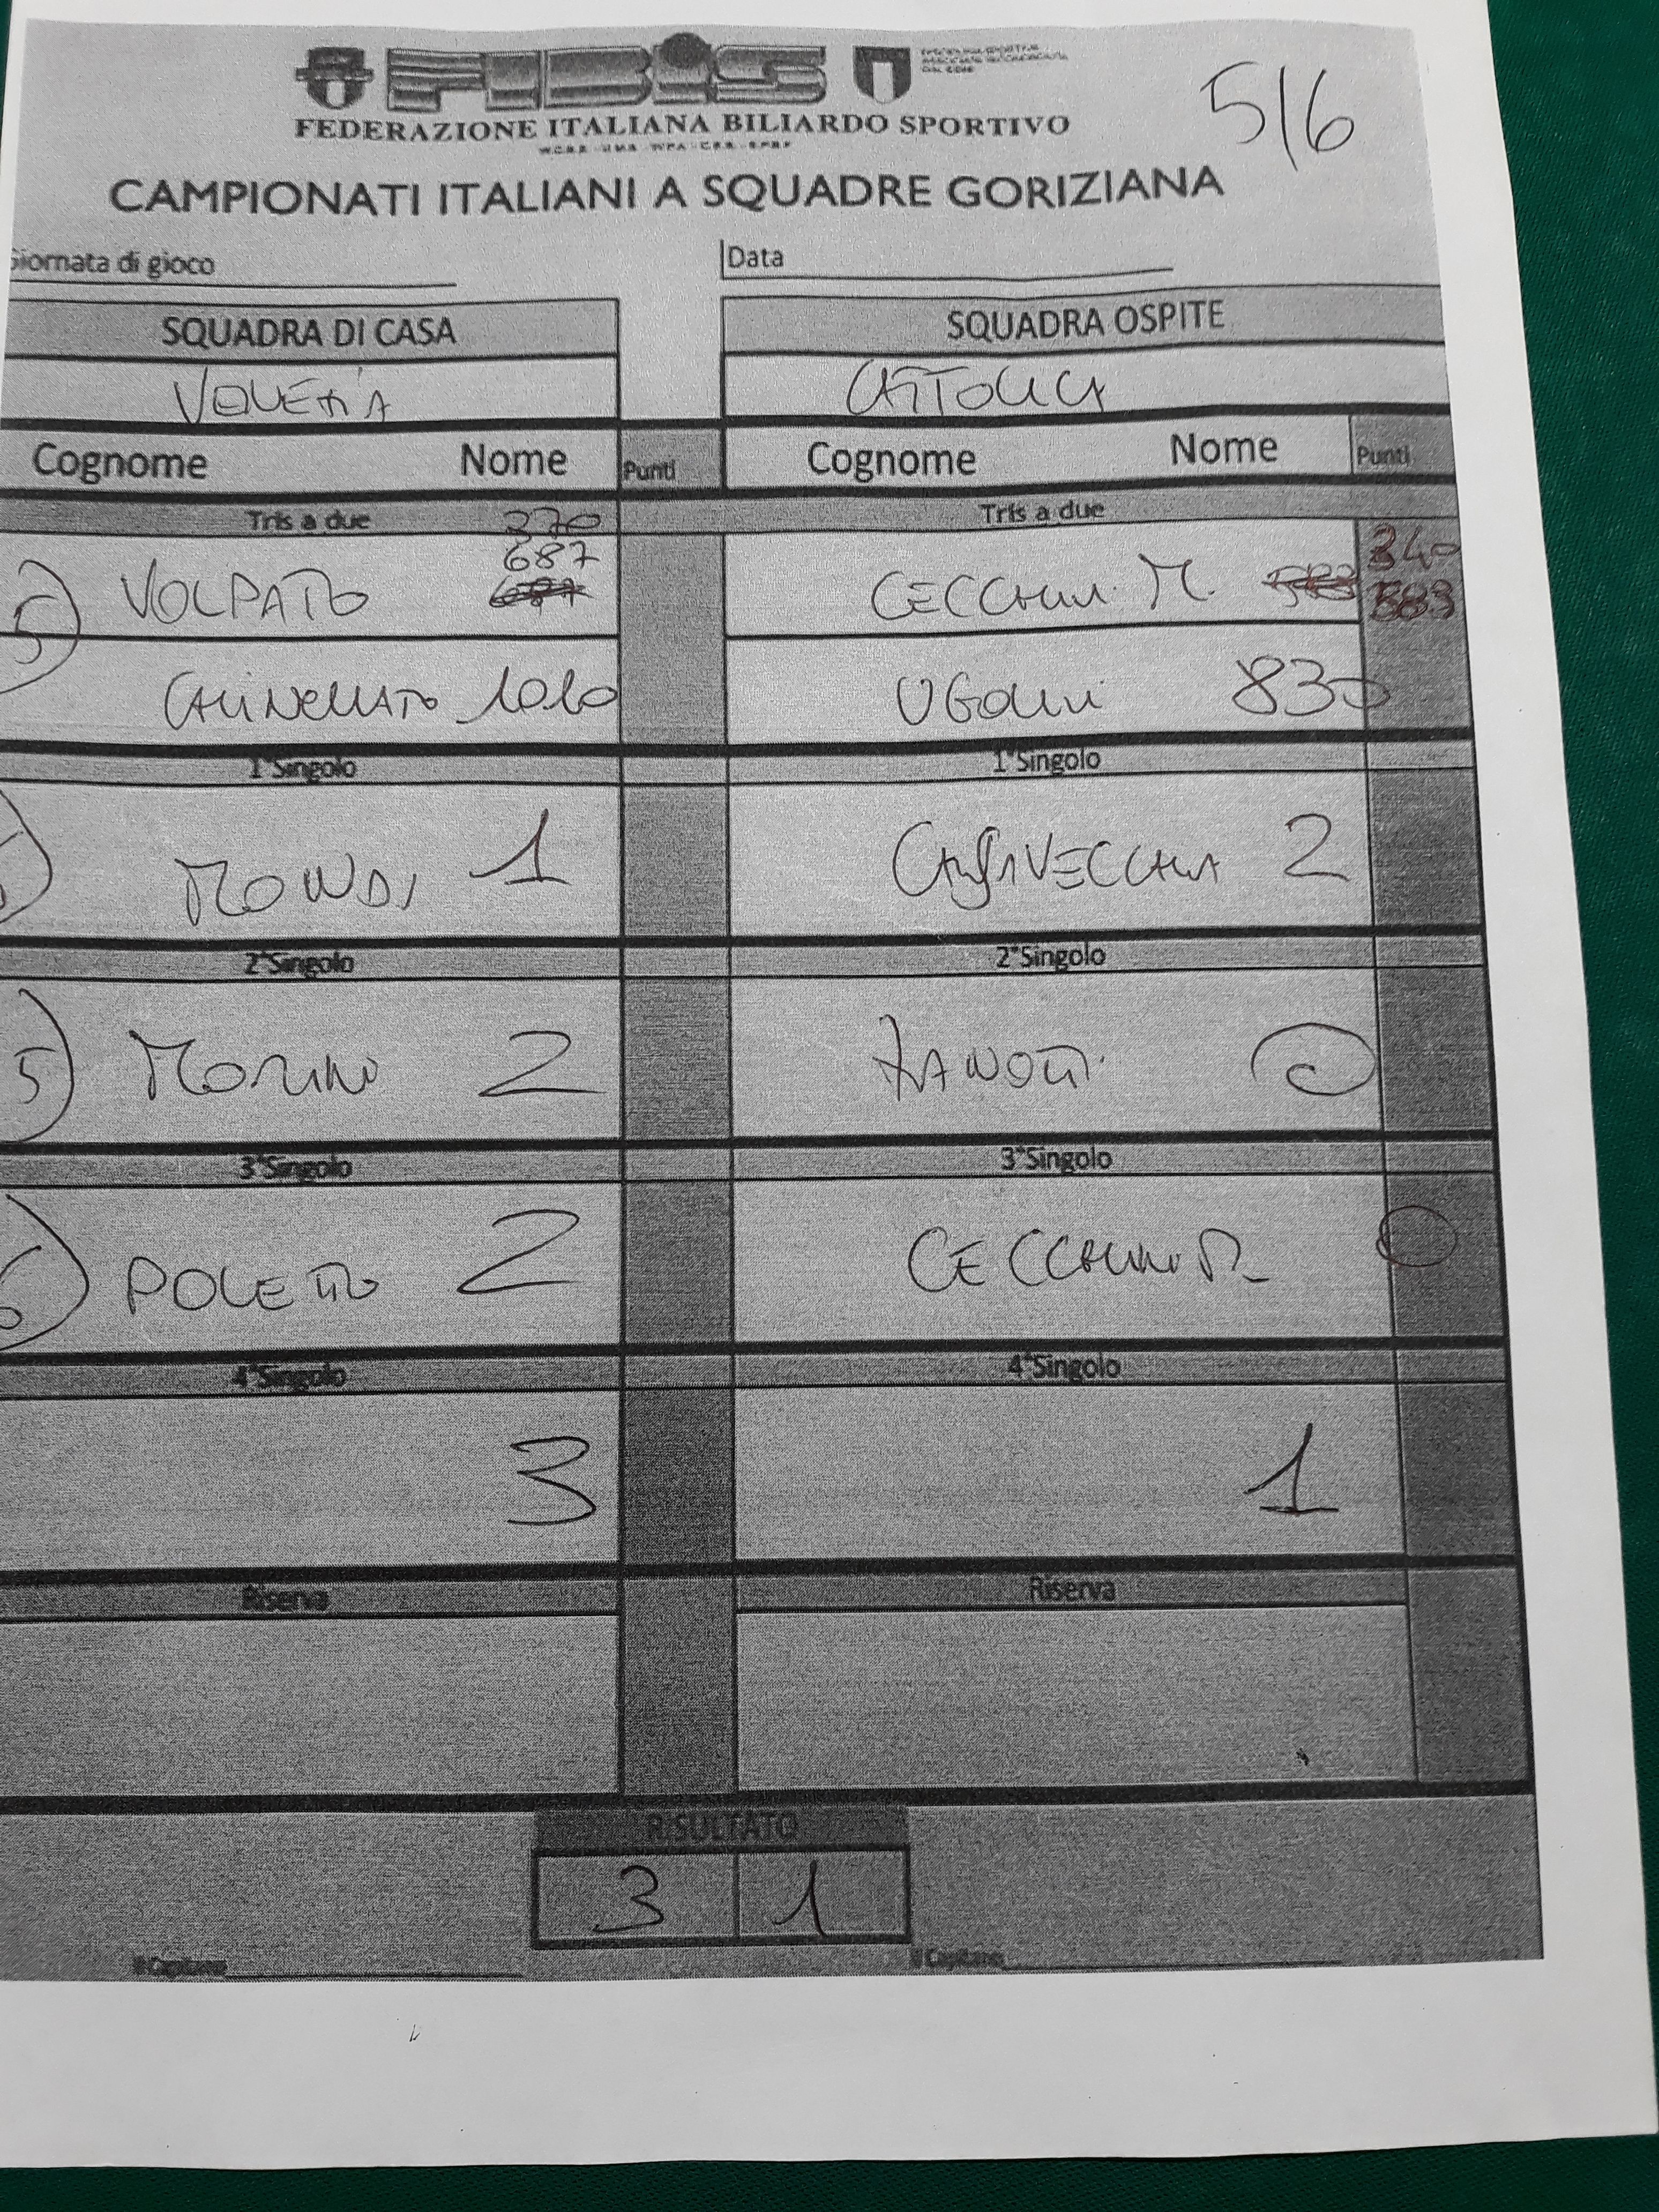 FIBiS
FEDERAZIONE ITALIANA BILIARDO SPORTIVO
5/6
CAMPIONATI ITALIANI A SQUADRE GORIZIANA
Giornata di gioco Data
SQUADRA DI CASA SQUADRA OSPITE
VENEZIA CATTOLICA
Cognome Nome Punti Cognome Nome Punti
Tris a due 370 Tris a due
687 340
5 VOLPATO CECCHINI M. 583
CHINELLATO 1010 UGOLINI 830
1°Singolo 1°Singolo
MONDI 1 CASAVECCHIA 2
2°Singolo 2°Singolo
5 MORINO 2 ZANOTTI 0
3°Singolo 3°Singolo
6 POLETTO 2 CECCHINI R 0
4°Singolo 4°Singolo
3 1
Riserva Riserva
RISULTATO
3 1
Il Capitano Il Capitano